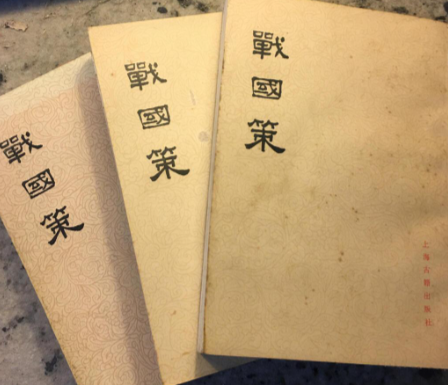 戰國策
戰國策
戰國策
上海古籍出版社